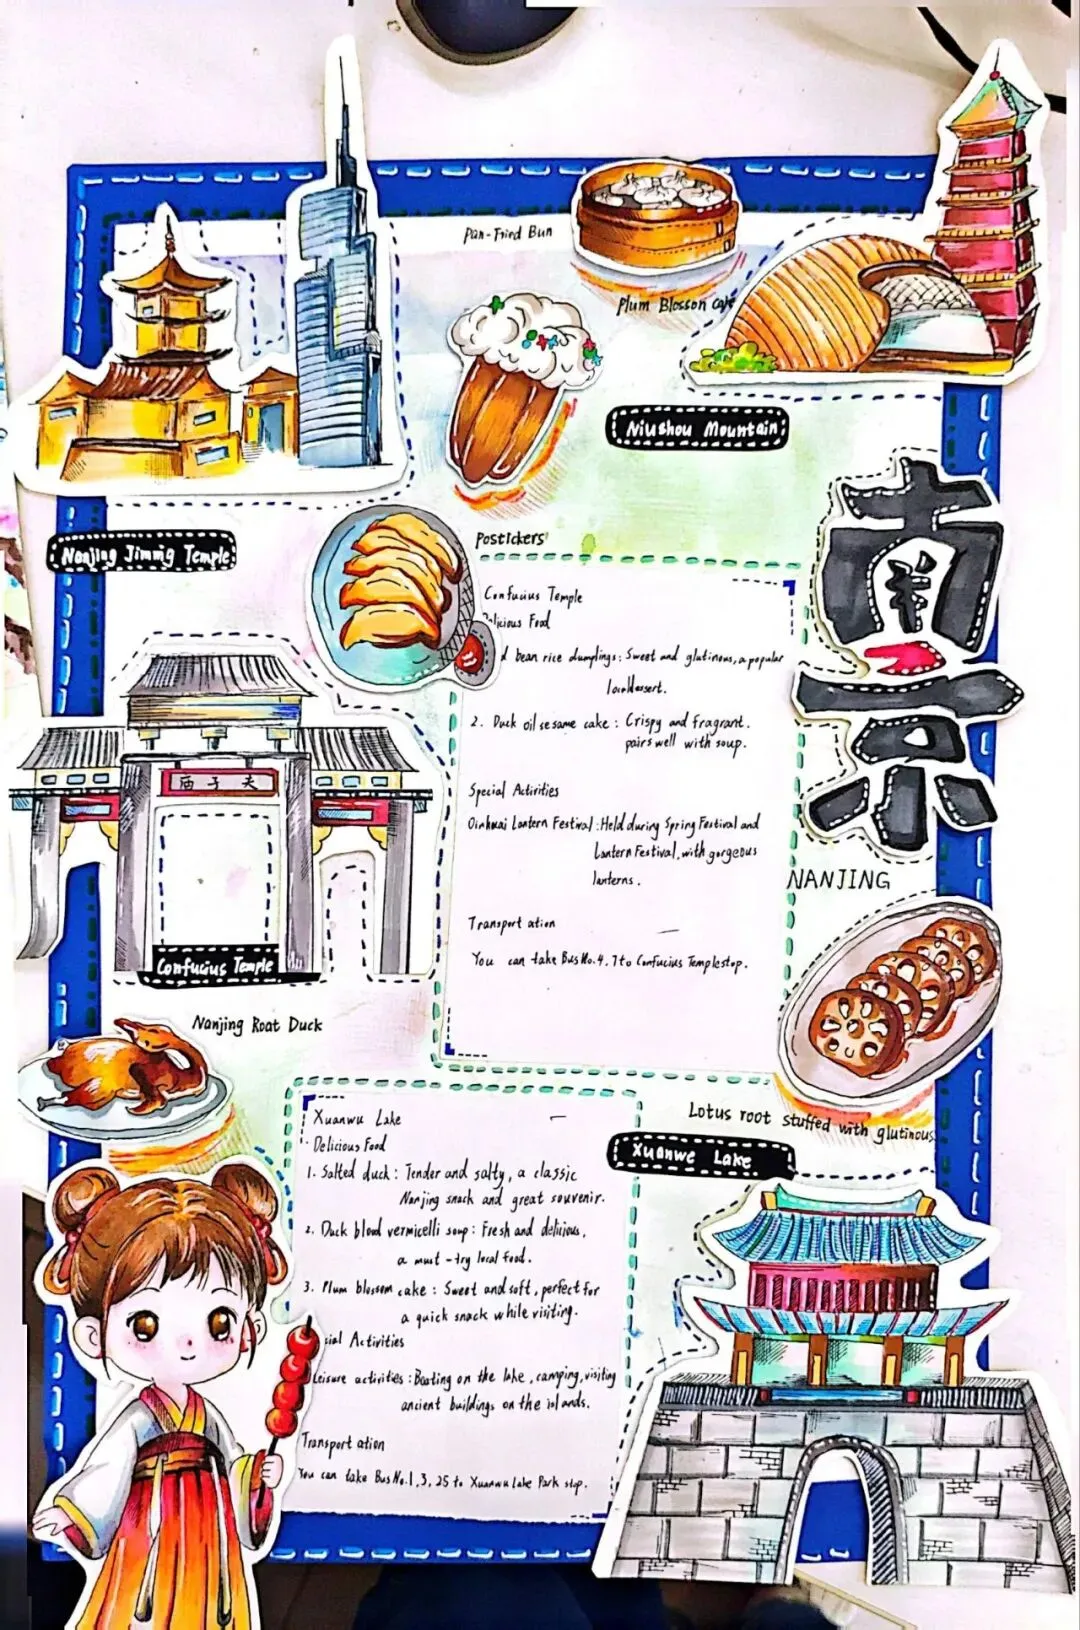 Pan-Fried Bun
Plum Blosson cake
Niushou Mountain
Nanjing Jiming Temple
Postickers
南京
NANJING
Confucius Temple
Delicious Food
d bean rice dumplings: Sweet and glutinous, a popular
local dessert.
2. Duck oil sesame cake: Crispy and fragrant.
pairs well with soup.
Special Activities
Qinhuai Lantern Festival: Held during Spring Festival and
Lantern Festival, with gorgeous
lanterns.
Transport ation
You can take Bus No. 4, 7 to Confucius Temple stop.
庙子夫
Confucius Temple
Nanjing Roat Duck
Lotus root stuffed with glutinous
Xuanwe Lake
Xuanwu Lake
Delicious Food
1. Salted duck: Tender and salty, a classic
Nanjing snack and great souvenir.
2. Duck blood vermicelli soup: Fresh and delicious,
a must-try local food.
3. Plum blossom cake: Sweet and soft, perfect for
a quick snack while visiting.
cial Activities
Leisure activities: Boating on the lake, camping, visiting
ancient buildings on the islands.
Transport ation
You can take Bus No. 1, 3, 25 to Xuanwu Lake Park stop.